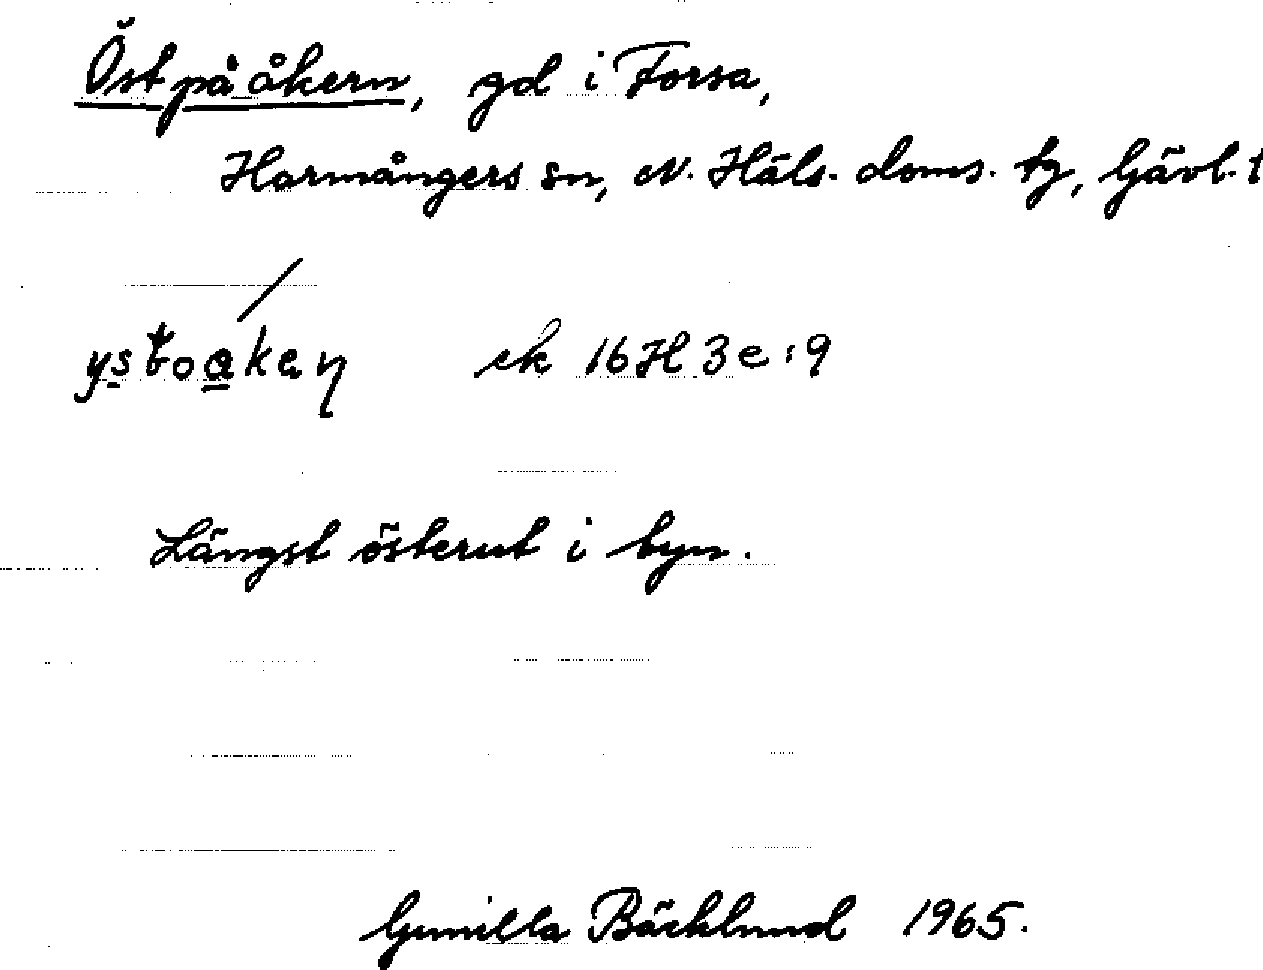 Öst på åkern, gd i Forsa,
Harmångers sn, N. Häls. doms. tg, Gävl. l
ystoaken ek 16H 3e:9
Längst österut i byn.
Gunilla Bäcklund 1965.